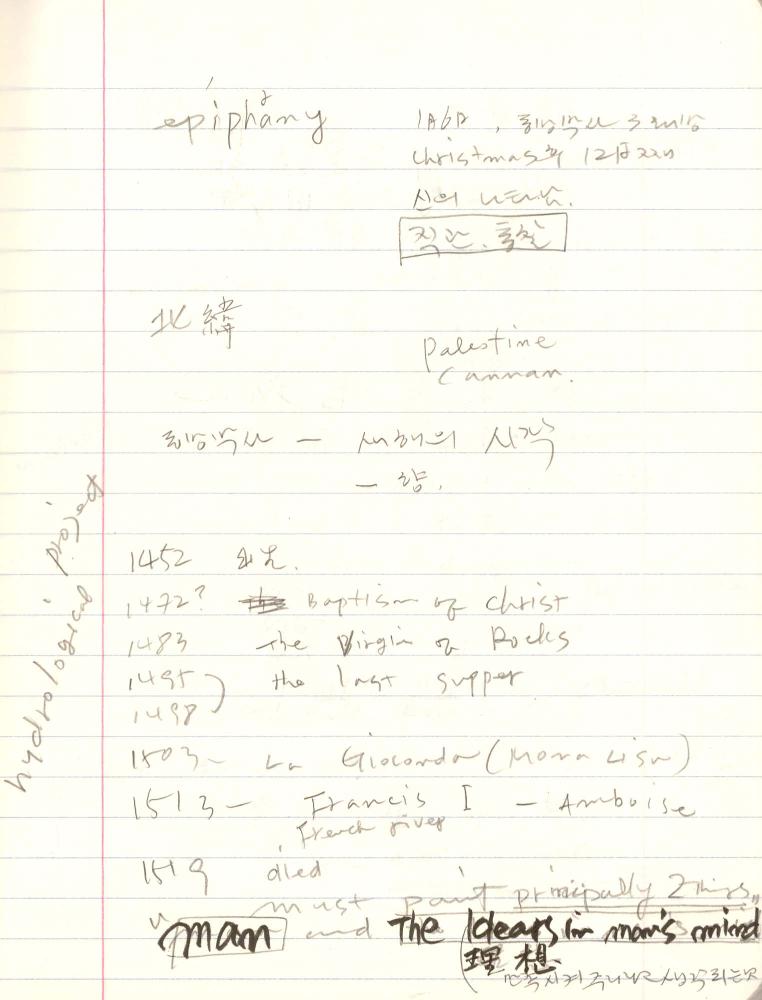 epiphany
1月6日, 동방박사
christmas 12日
신의 나타남.
직관. 통찰
北緯
Palestine
Cannan.
동방박사 — 새해의 시작
—
hydrological project
1452
1472? Baptism of Christ
1483 the Virgin of Rocks
1495 the last supper
1498
1503- La Gioconda (Mona Lisa)
1513- Francis I - Amboise
French river
1519 died
must paint principally 2 things
man and The Idears in man's mind
理想